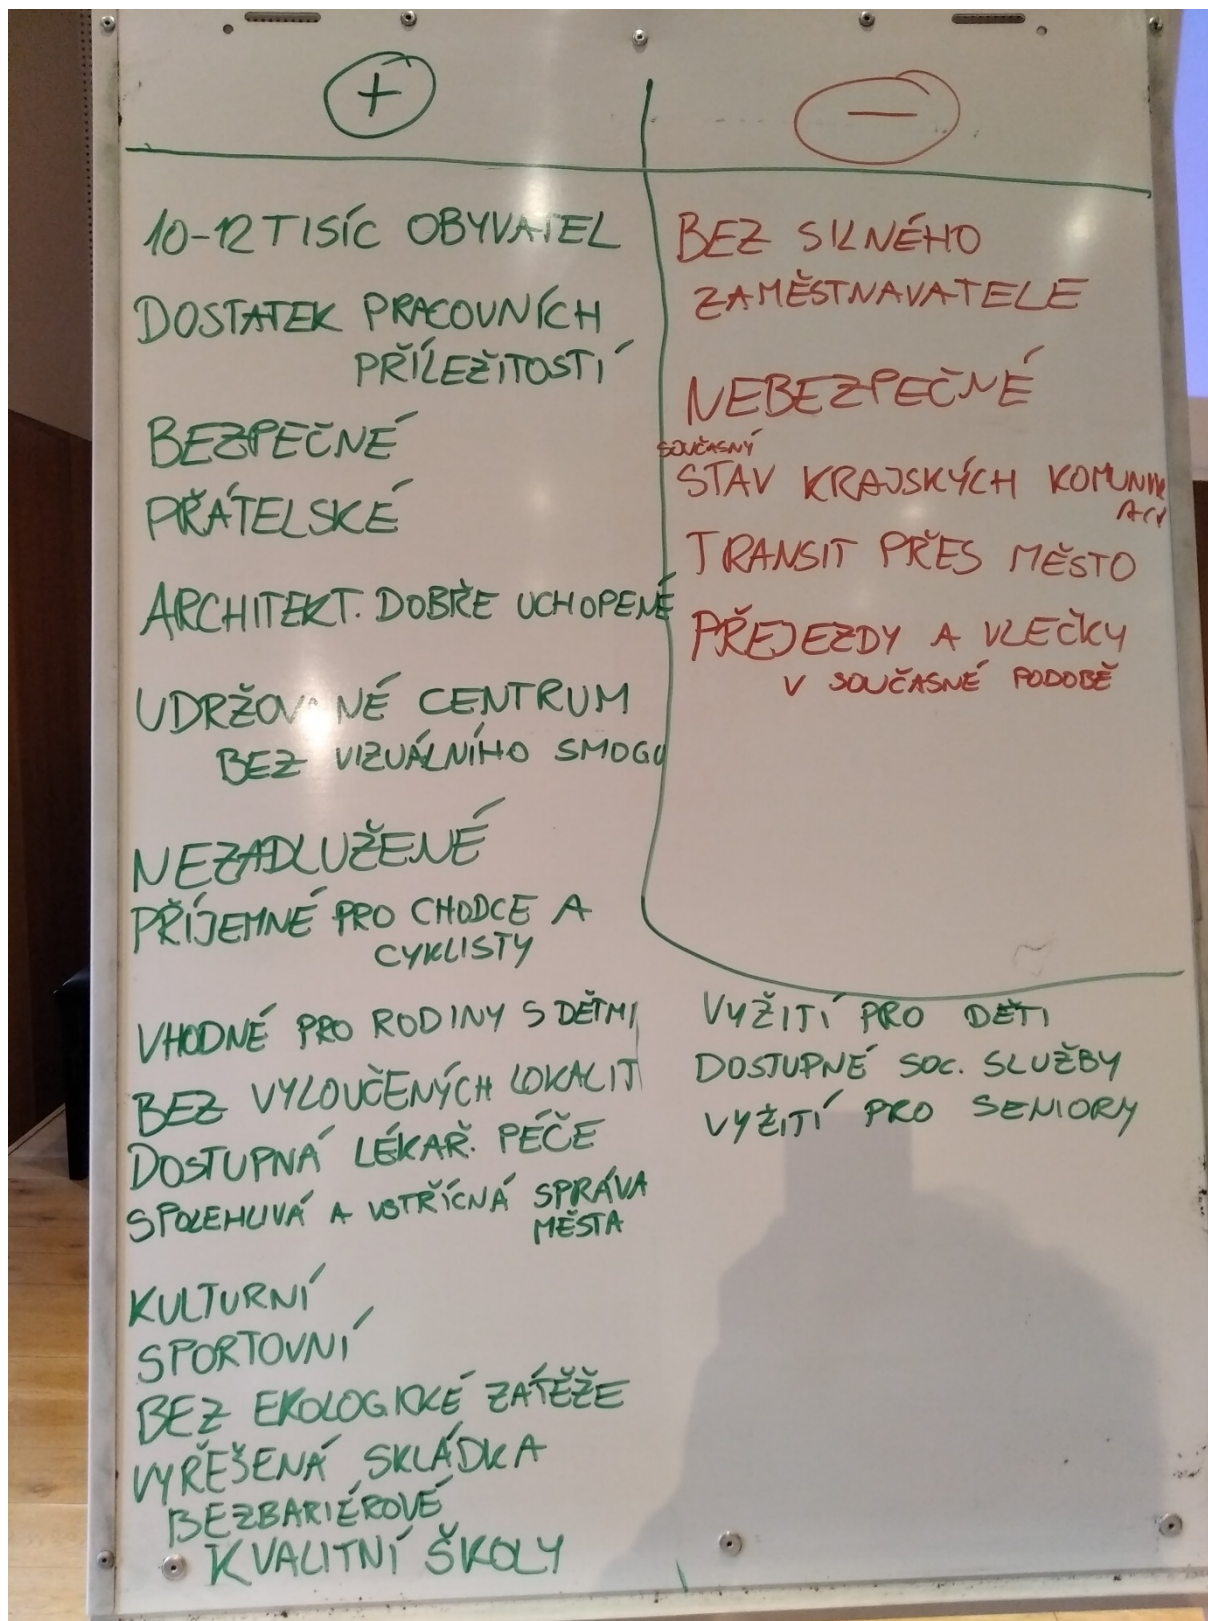 +
10-12 TISÍC OBYVATEL
DOSTATEK PRACOVNÍCH
PŘÍLEŽITOSTÍ
BEZPEČNÉ
PŘÁTELSKÉ
ARCHITEKT. DOBŘE UCHOPENÉ
UDRŽOVANÉ CENTRUM
BEZ VIZUÁLNÍHO SMOGU
NEZADLUŽENÉ
PŘÍJEMNÉ PRO CHODCE A
CYKLISTY
VHODNÉ PRO RODINY S DĚTMI
BEZ VYLOUČENÝCH LOKALIT
DOSTUPNÁ LÉKAŘ. PÉČE
SPOLEHLIVÁ A VSTŘÍCNÁ SPRÁVA
MĚSTA
KULTURNÍ
SPORTOVNÍ
BEZ EKOLOGICKÉ ZÁTĚŽE
VYŘEŠENÁ SKLÁDKA
BEZBARIÉROVÉ
KVALITNÍ ŠKOLY
−
BEZ SILNÉHO
ZAMĚSTNAVATELE
NEBEZPEČNÉ
SOUČASNÝ
STAV KRAJSKÝCH KOMUNIK
ACÍ
TRANSIT PŘES MĚSTO
PŘEJEZDY A VLEČKY
V SOUČASNÉ PODOBĚ
VYŽITÍ PRO DĚTI
DOSTUPNÉ SOC. SLUŽBY
VYŽITÍ PRO SENIORY